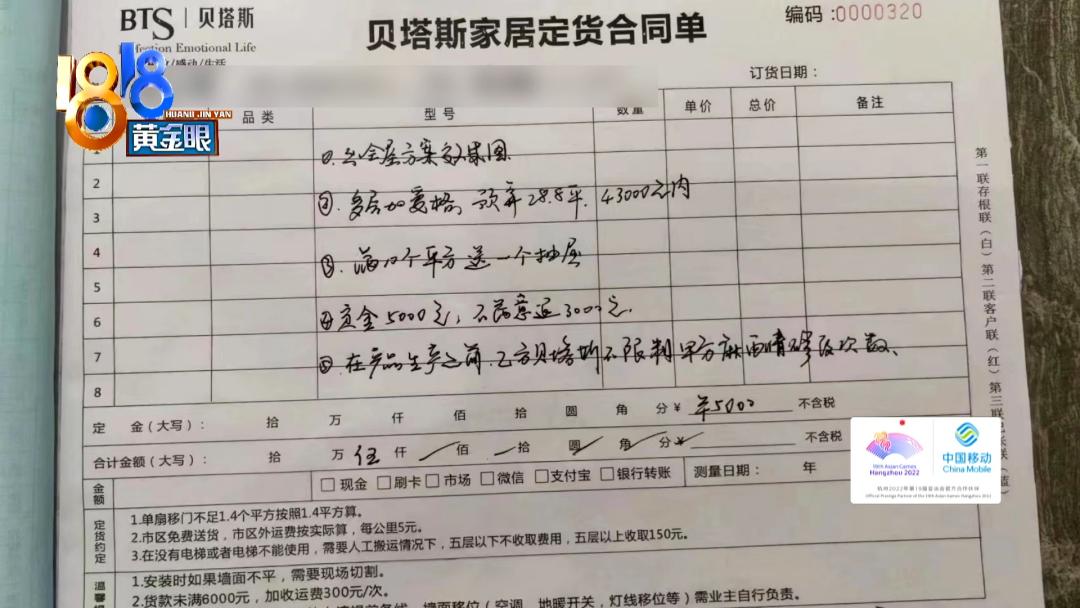 BTS | 贝塔斯
fection Emotional Life
/感动/生活
贝塔斯家居定货合同单
编码:0000320
1818
HUANG JIN YAN
黄金眼
订货日期：
品类 型号 数量 单价 总价 备注
1 ①.出全屋方案效果图
2
3 ②.多层加爱格,预算28.8平.43000元内
4
5 ③.满10个平方送一个抽屉
6 ④定金5000元，不满意退3000元.
7 ⑤在产品生产之前.乙方贝塔斯不限制甲方
8
定 金(大写)： 拾 万 仟 佰 拾 圆 角 分¥ 5000 不含税
合计金额(大写)： 拾 万 伍 仟 佰 拾 圆 角 分¥ 不含税
金额 □现金 □刷卡 □市场 □微信 □支付宝 □银行转账 测量日期： 年
定货约定
1.单扇移门不足1.4个平方按照1.4平方算。
2.市区免费送货，市区外运费按实际算，每公里5元。
3.在没有电梯或者电梯不能使用，需要人工搬运情况下，五层以下不收取费用，五层以上收取150元。
温馨
1.安装时如果墙面不平，需要现场切割。
2.货款未满6000元，加收运费300元/次。
墙面移位(空调、地暖开关，灯线移位等)需业主自行负责。
第一联存根联(白) 第二联客户联(红) 第三联
19th Asian Games
Hangzhou 2022
中国移动
China Mobile
杭州2022年第19届亚运会官方合作伙伴
Official Prestige Partner of the 19th Asian Games Hangzhou 2022